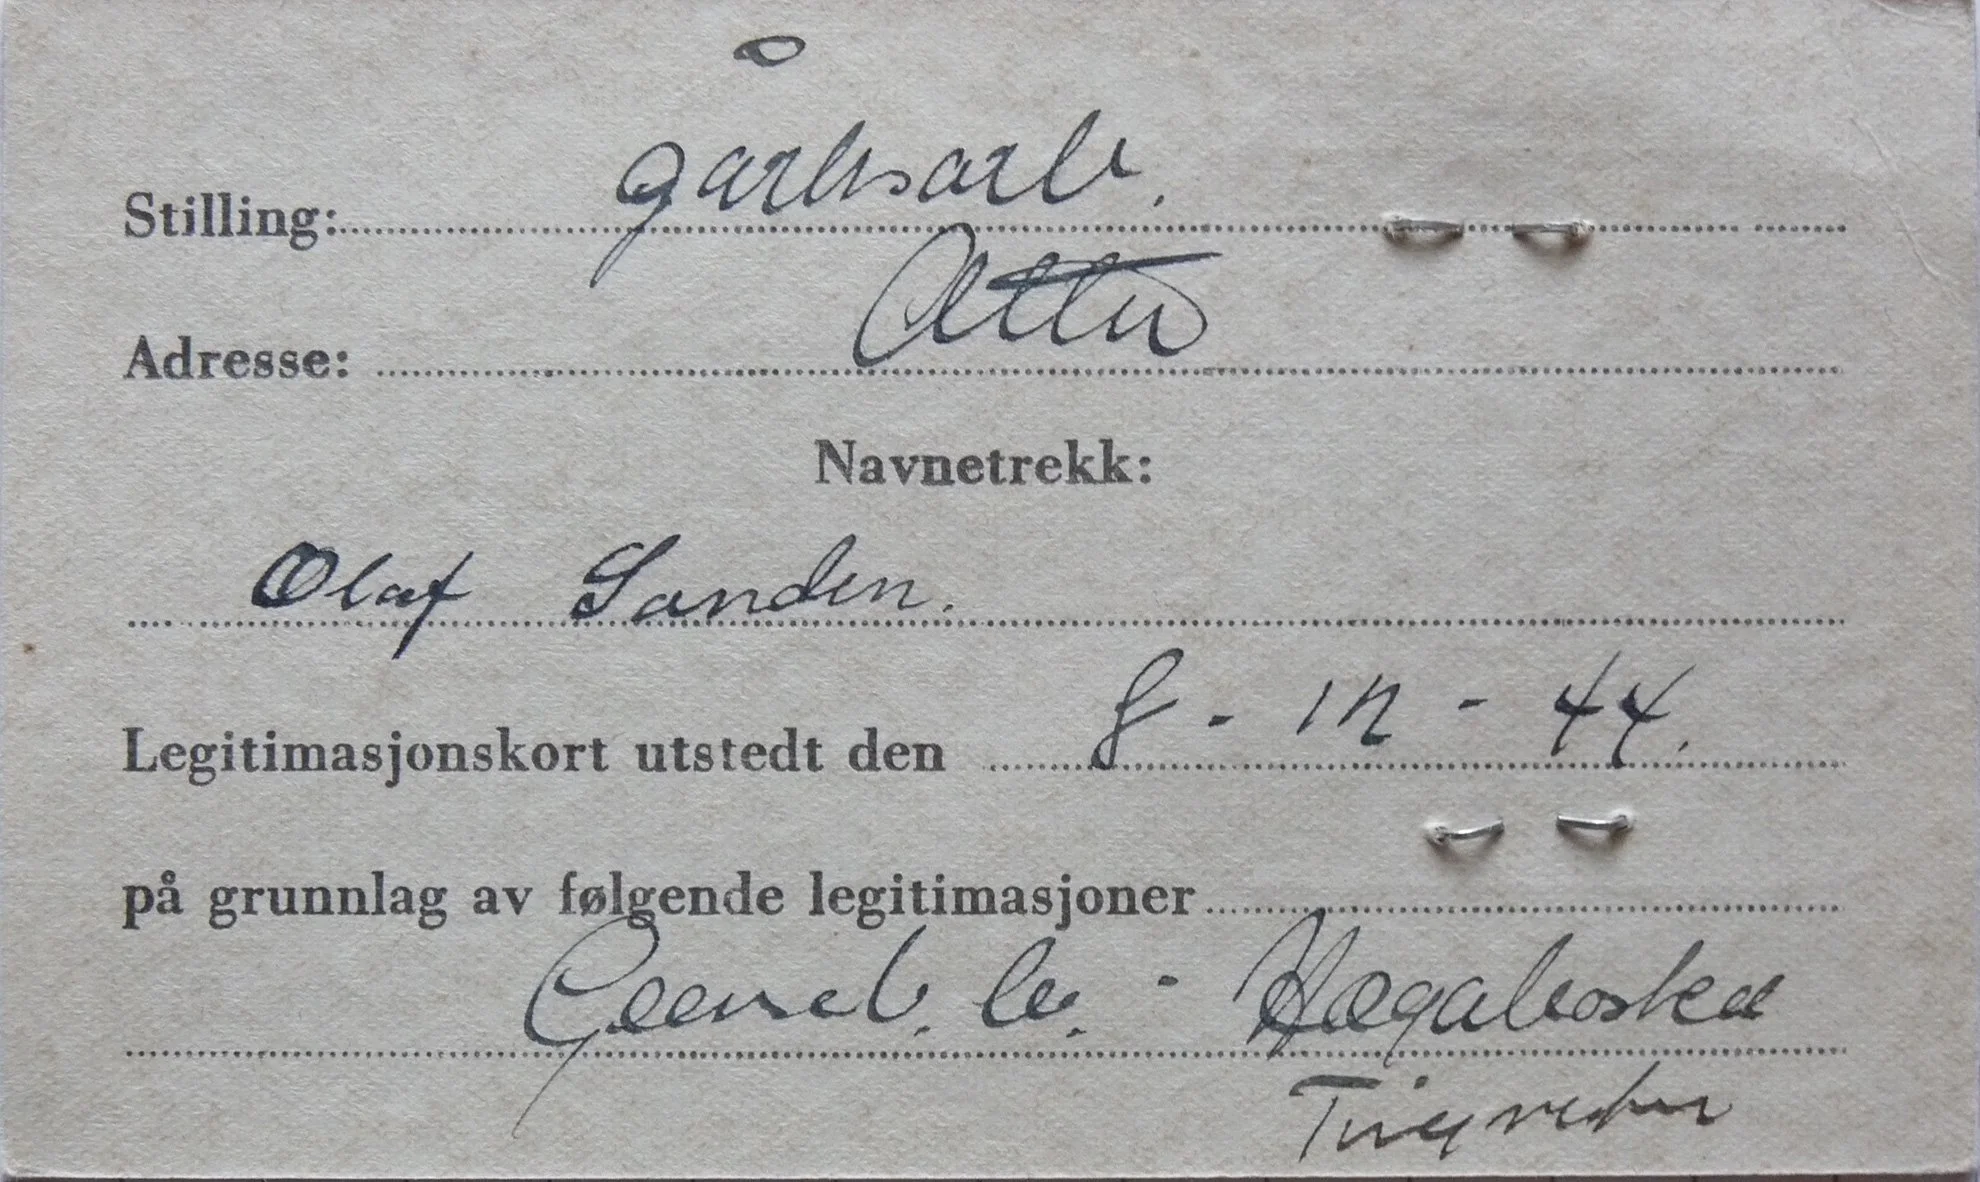 Stilling: gårdsarb.
Adresse: Otta
Navnetrekk:
Olaf Sanden.
Legitimasjonskort utstedt den 8 - 12 - 44.
på grunnlag av følgende legitimasjoner
Grenseb. be.